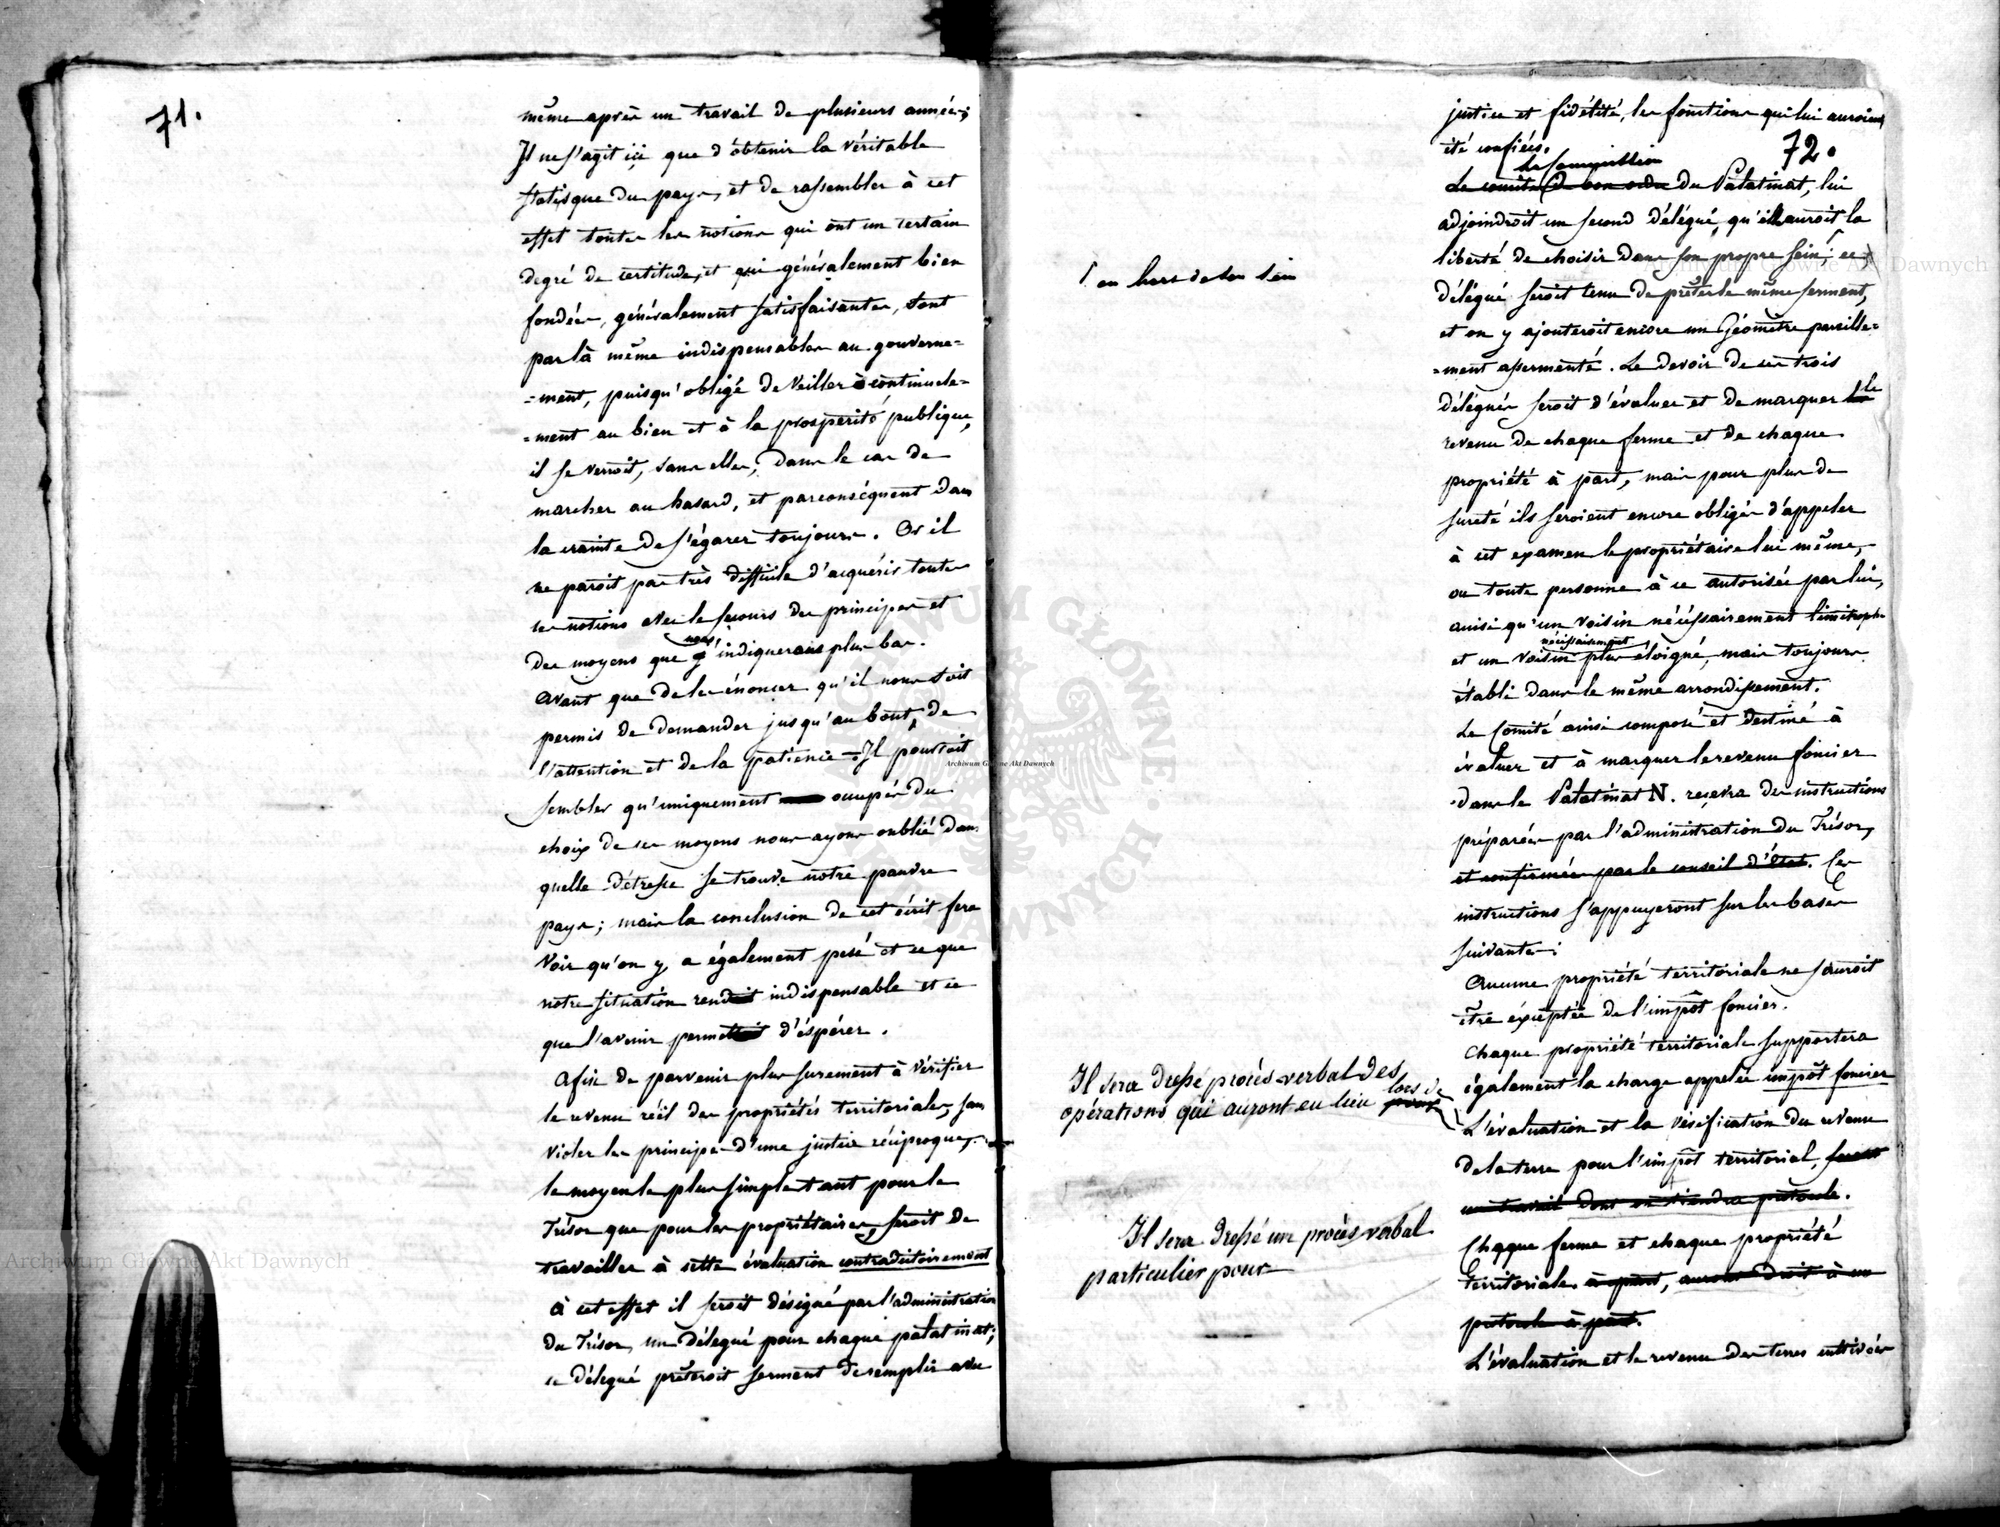 71.
même après un travail de plusieurs années;
Il ne s'agit ici que d'obtenir la véritable
statisque du pays, et de rassembler à cet
effet toutes les notions qui ont un certain
degré de certitude, et qui généralement bien
fondées, généralement satisfaisantes, sont
par là même indispensables au gouverne=
=ment, puisqu'obligé de veiller continuele=
=ment au bien et à la prosperité publique,
il se verroit, sans elles, dans le cas de
marcher au hasard, et parconséquent dans
la crainte de s'égarer toujours. Or il
ne paroit pas très difficile d'acquérir toutes
ces notions avec le secours des principes et
nous
des moyens que j'indiquerais plus bas.
Avant que de les énoncer qu'il nous soit
permis de demander jusqu'au bout, de
l'attention et de la patience. Il pourroit
sembler qu'uniquement occupés du
choix de ces moyens nous ayons oublié dans
quelle détresse se trouve nôtre pauvre
pays; mais la conclusion de cet écrit fera
voir qu'on y a également pesé et ce que
notre situation rend indispensable et ce
que l'avenir permet d'éspérer.
Afin de parvenir plus surement à vérifier
le revenu réel des propriétés territoriales, sans
violer les principes d'une justice réciproque,
le moyen le plus simple tant pour le
Trésor que pour les propriétaires, seroit de
travailler à cette évaluation contradictoirement
À cet effet il seroit désigné par l'administration
du Trésor, un délegué pour chaque palatinat;
ce délegué prêteroit serment de remplir avec
justice et fidélité, les fonctions qui lui auroient
été confiées.
72.
la Commission
Le comité de bon ordre du Palatinat, lui
adjoindroit un second délégué, qu'il auroit la
liberté de choisir dans son propre sein; ce
ou hors de son sein
délégué seroit tenu de prêter le même serment,
et on y ajouteroit encore un Géomètre pareille=
=ment assermenté. Le devoir de ces trois
délégués seroit d'évaluer et de marquer le
revenu de chaque ferme et de chaque
propriété à part, mais pour plus de
sureté ils seroient encore obligés d'appeler
à cet examen le propriétaire lui même,
ou toute personne à ce autorisée par lui,
ainsi qu'un voisin nécéssairement limitrophe
nécessairement
et un voisin plus éloigné, mais toujours
établi dans le même arrondissement.
Le Comité ainsi composé et destiné à
évaluer et à marquer le revenu foncier
dans le Palatinat N. recevra des instructions
préparées par l'administration du Trésor,
et confirmées par le conseil d'état. Ces
instructions s'appuyeront sur les bases
suivantes:
Aucune propriété territoriale ne sauroit
être éxceptée de l'impôt foncier.
Chaque propriété territoriale supportera
également la charge appelée impôt foncier
Il sera dressé procès-verbal des
opérations qui auront eu lieu pour
lors de
L'évaluation et la vérification du revenu
de la terre pour l'impôt territorial,
un travail dont on tiendra protocole.
Il sera dressé un procès verbal
particulier pour
Chaque ferme et chaque propriété
territoriale à part, auront droit à un
protocole à part.
L'évaluation et le revenu des terres cultivées